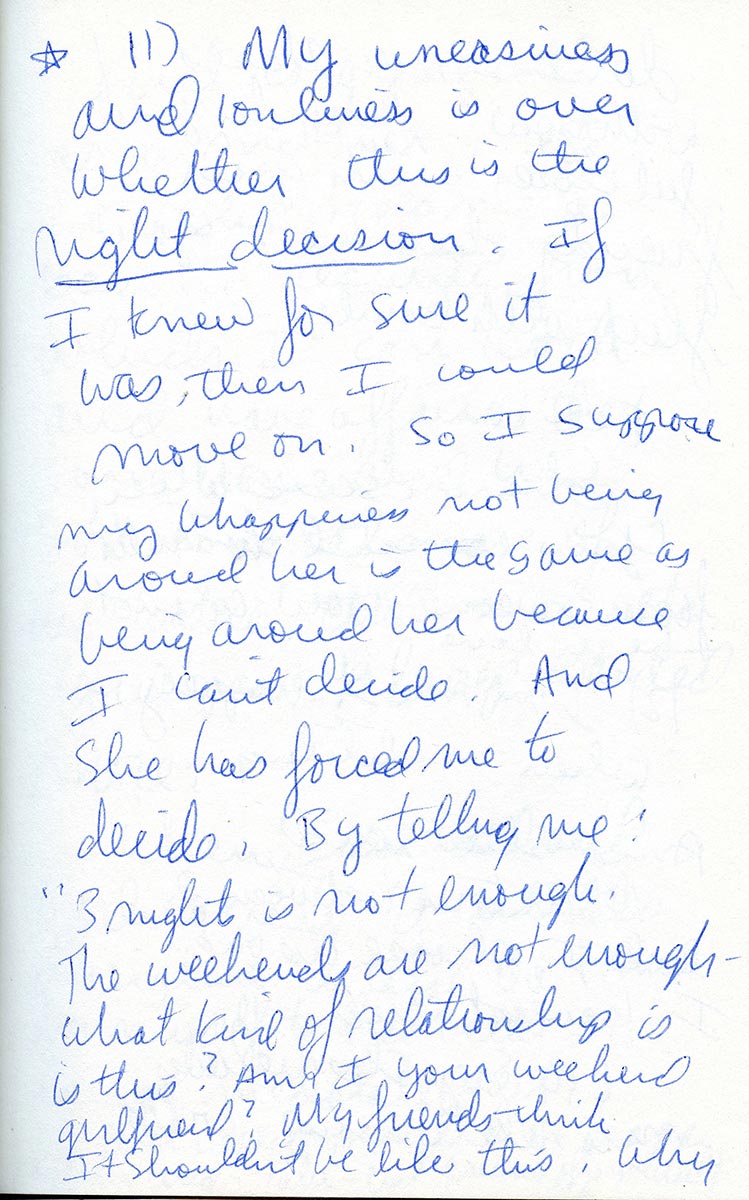 ☆ 11) My uneasiness
and lonliness is over
whether this is the
right decision. If
I knew for sure it
was, then I could
move on. So I suppose
my unhappiness not being
around her is the same as
being around her because
I can't decide. And
She has forced me to
decide. By telling me:
"3 nights is not enough.
The weekends are not enough-
what kind of relationship is
is this? Am I your weekend
girlfriend? My friends think
It shouldn't be like this. Why